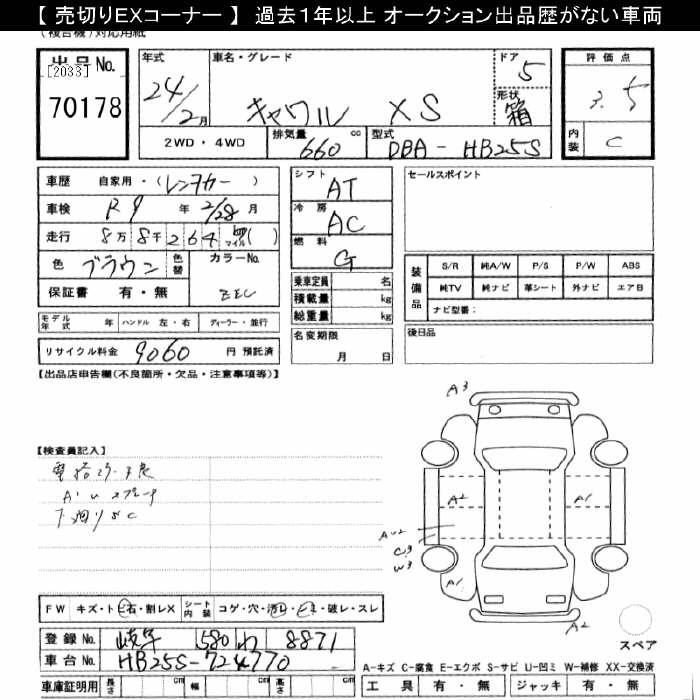 【 売切りEXコーナー 】 過去1年以上 オークション出品歴がない車両
(複合機)対応用紙
出品No.
[2033]
70178
年式
24/2月
車名・グレード
キャロル XS
ドア
5
形状
箱
評価点
3.5
内装
C
2WD・4WD
排気量
660
cc
型式
DBA-HB25S
車歴
自家用・(レンタカー)
車検
R9 年 2/28 月
走行
8万 8千 2 6 4 km マイル ( )
色
ブラウン
色替
カラーNo.
ZEC
保証書
有・無
シフト
AT
冷房
AC
燃料
G
乗車定員
名
積載量
kg
総重量
kg
セールスポイント
装備品
S/R 純A/W P/S P/W ABS
純TV 純ナビ 革シート 外ナビ エアB
ナビ型番:
モデル年式 年 ハンドル 左・右 ディーラー・並行
リサイクル料金 9060 円 預託済
名変期限
月 日
後日品
【出品店申告欄(不良箇所・欠品・注意事項等)】
【検査員記入】
下廻りSC
A3
A2
A1
AU2
C3
W3
A1
A2
FW キズ・トビ石・割レX シート内装 コゲ・穴・汚レ・シミ・破レ・スレ
登録No. 岐阜 580 わ 8871
車台No. HB25S-724770
車庫証明用 長さ cm 幅 cm 高さ cm
スペア
A-キズ C-腐食 E-エクボ S-サビ U-凹ミ W-補修 XX-交換済
工具 有・無 ジャッキ 有・無